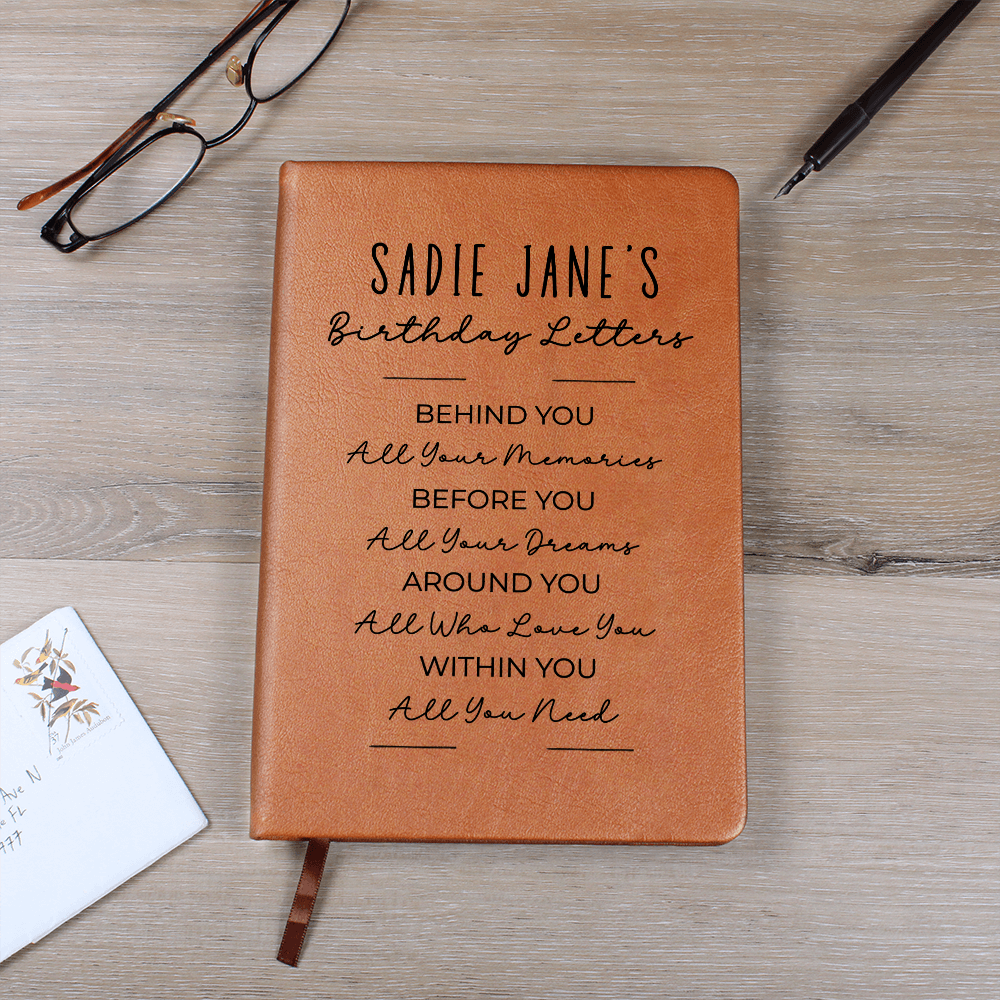 SADIE JANE'S
Birthday Letters
BEHIND YOU
All Your Memories
BEFORE YOU
All Your Dreams
AROUND YOU
All Who Love You
WITHIN YOU
All You Need
John James Audubon
Ave N
FL
977